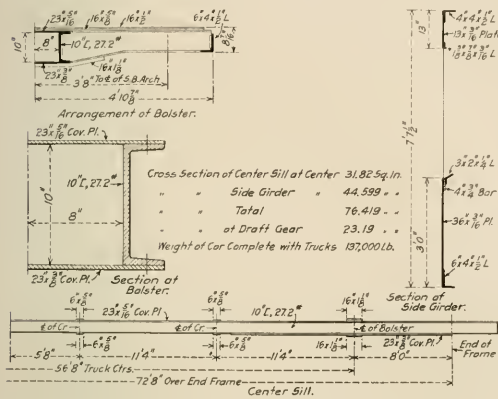 23"x 5/16"
16"x 5/8"
16"x 1/2"
6"x4"x 1/2" L
10"
8"
10"[, 27.2#
16"x 1/8"
23"x 3/8"
3'8" To ₵ of S.B. Arch
4'10 7/8"
Arrangement of Bolster.
23"x 5/16" Cov. Pl.
10"
10"[, 27.2#
8"
23"x 3/8" Cov. Pl.
Section at
Bolster.
Cross Section of Center Sill at Center 31.82 Sq. In.
" " Side Girder " 44.599 " "
" " Total 76.419 " "
" " at Draft Gear 23.19 " "
Weight of Car Complete with Trucks 137,000 Lb.
13"
4"x4"x 1/2" L
13"x 3/16" Plate
7'7 1/2"
3"x2"x 1/4" L
4"x 3/4" Bar
3'0"
36"x 3/16" Pl.
6"x4"x 1/2" L
Section of
Side Girder.
6"x 5/8"
23"x 5/16" Cov. Pl.
6"x 5/8"
10"[, 27.2#
16"x 1/8"
₵ of Cr.
₵ of Cr.
₵ of Bolster
6"x 5/8"
6"x 5/8"
16"x 1/8"
23"x 3/8" Cov. Pl.
End of
Frame
5'8"
11'4"
11'4"
8'0"
56'8" Truck Ctrs.
72'8" Over End Frame
Center Sill.